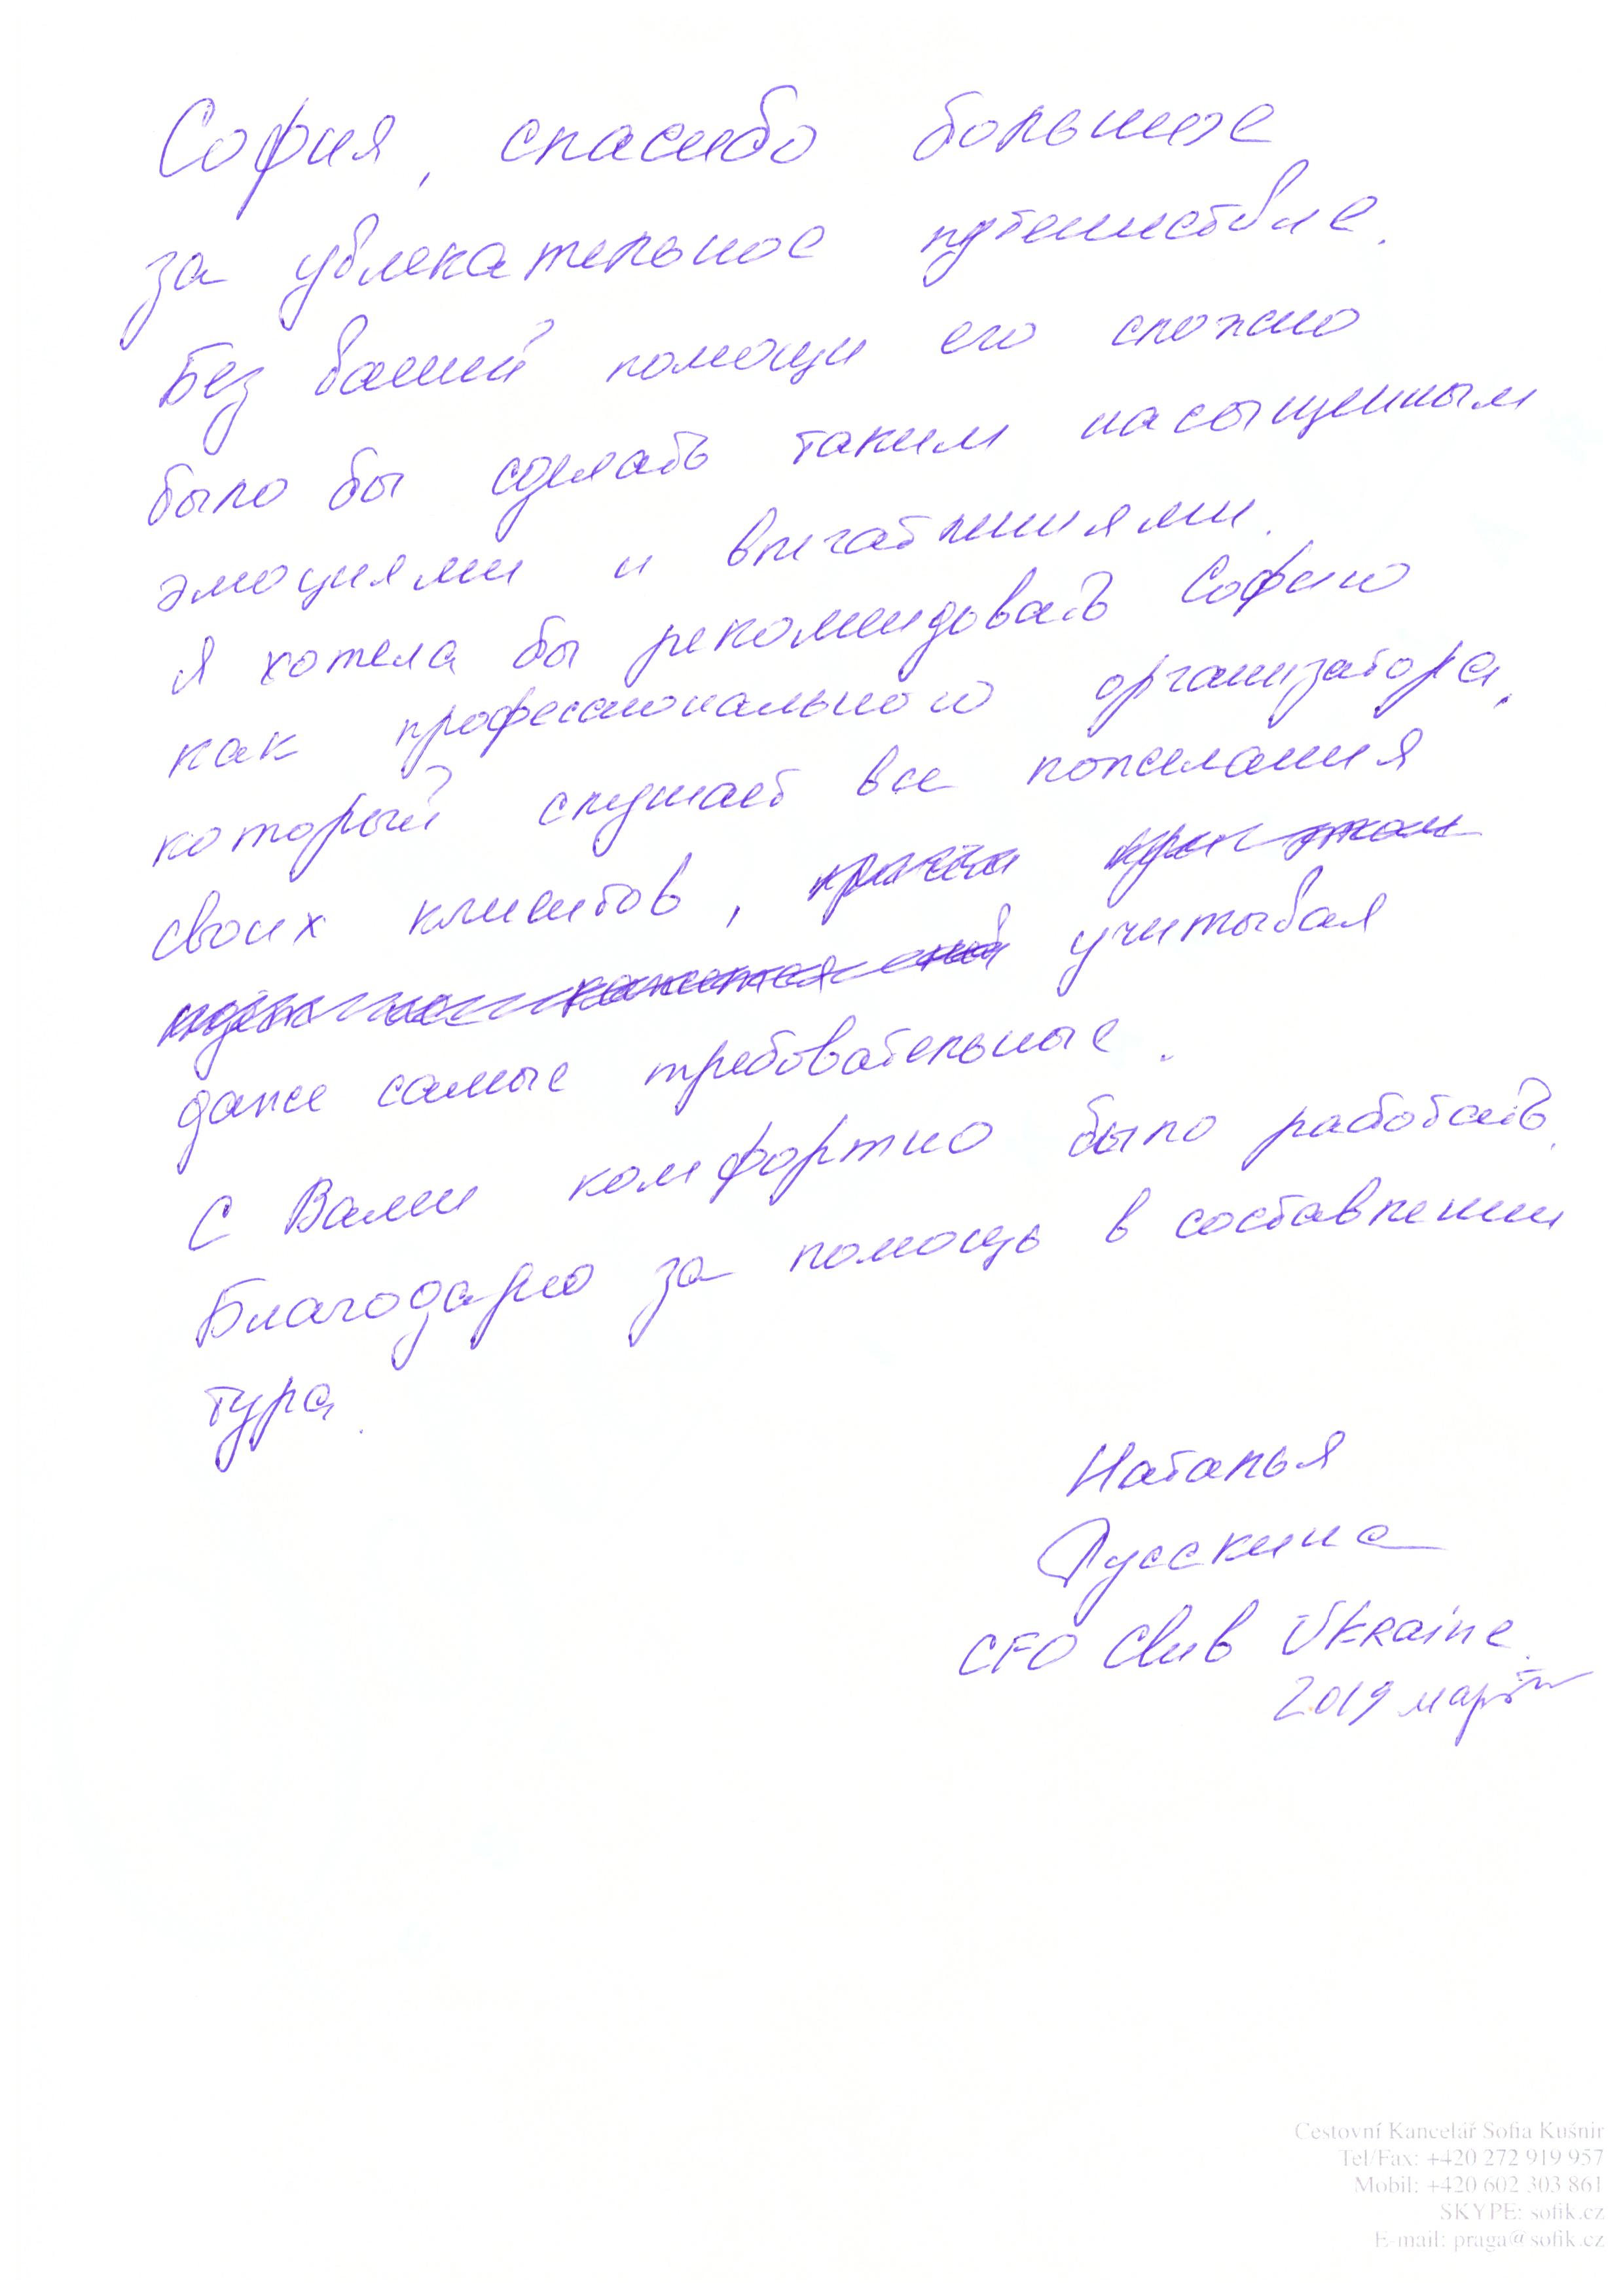 София, спасибо большое
за увлекательное путешествие.
Без вашей помощи его сложно
было бы сделать таким насыщенным
эмоциями и впечатлениями.
Я хотела бы рекомендовать Софию
как профессионального организатора,
который слушает все пожелания
своих клиентов,
учитывая
даже самые требовательные.
С Вами комфортно было работать.
Благодарю за помощь в составлении
тура.
Наталья
Русскина
CFO Club Ukraine.
2019 март
Cestovní Kancelář Sofia Kušnir
Tel/Fax: +420 272 919 957
Mobil: +420 602 303 861
SKYPE: sofik.cz
E-mail: praga@sofik.cz